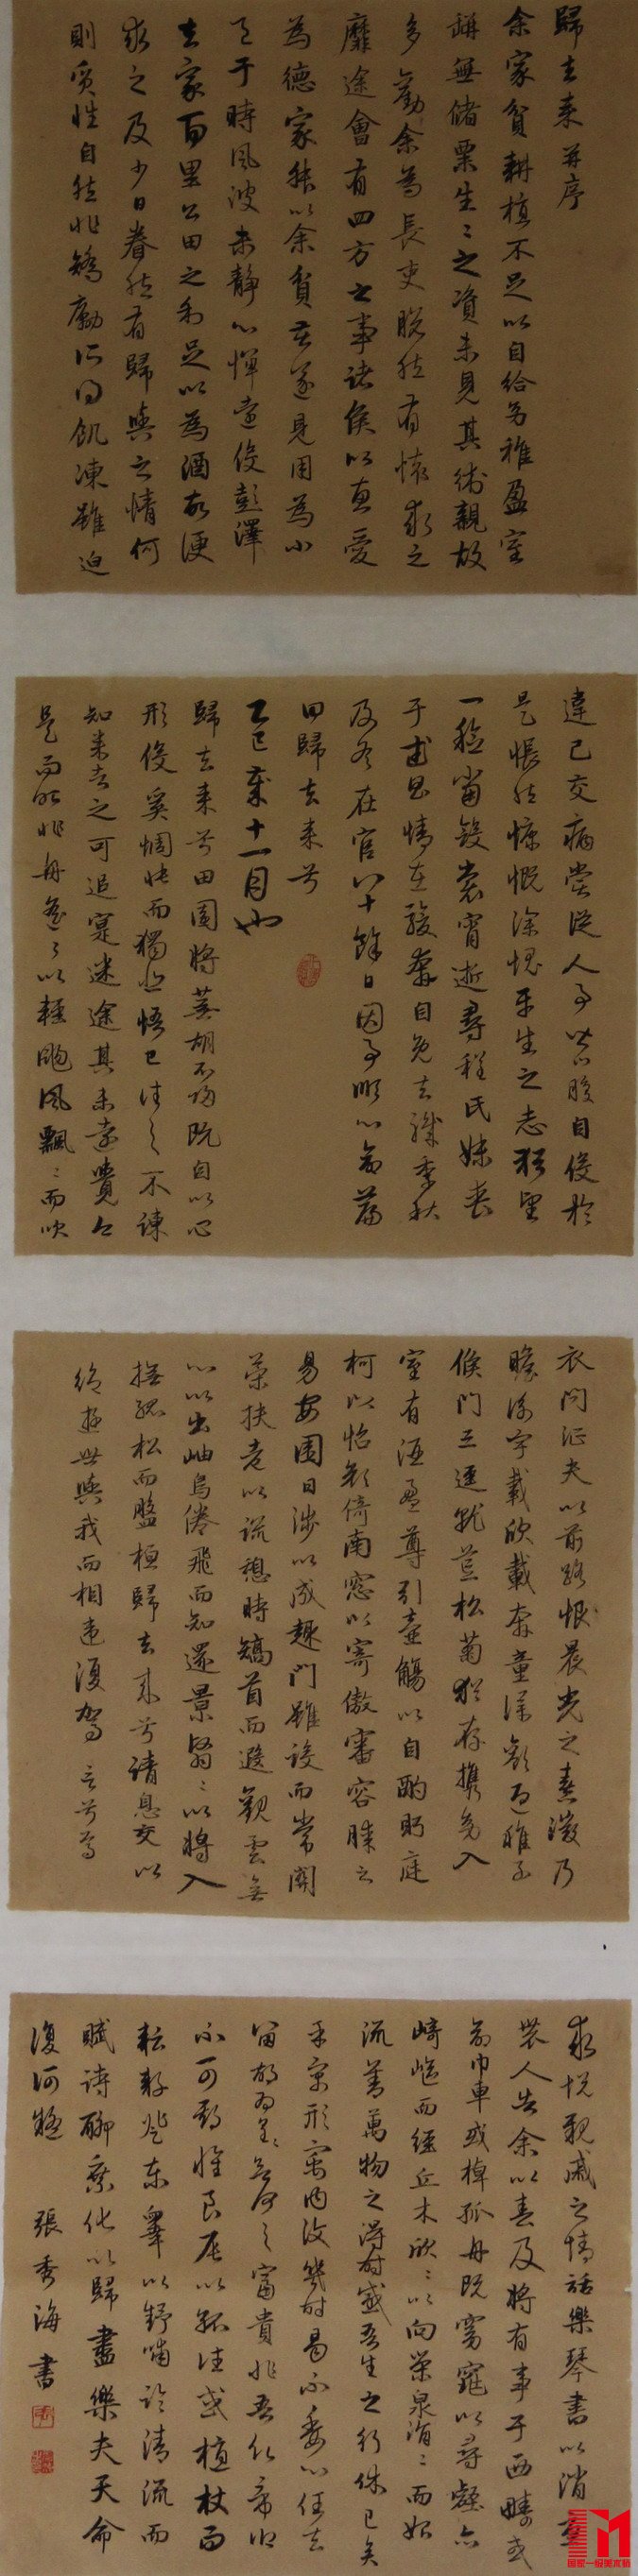 歸去来并序
余家貧耕植不足以自給幼稚盈室
缾無儲粟生〻之資未見其術親故
多勸余為長吏脱然有懷求之
靡途會有四方之事諸侯以惠愛
為德家叔以余貧苦遂見用為小
邑于時風波未静心惮遠役彭澤
去家百里公田之利足以為酒故便
求之及少日眷然有歸與之情何
則质性自然非矯勵所得飢凍雖迫
違己交病嘗従人事皆口腹自役於
是悵然慷慨深愧平生之志猶望
一稔當斂裳宵逝尋程氏妹丧
于武昌情在駿奔自免去職季秋
及冬在官八十餘日因事順心命篇
曰歸去来兮
乙巳歲十一月也
歸去来兮田園將蕪胡不歸既自以心
形役奚惆悵而獨悲悟已往之不諫
知来者之可追寔迷途其未遠覺今
是而昨非舟遥〻以輕颺風飄〻而吹
衣問征夫以前路恨晨光之熹微乃
瞻衡宇載欣載奔童僕歡迎稚子
候門三逕就荒松菊猶存攜幼入
室有酒盈尊引壺觴以自酌眄庭
柯以怡顔倚南窓以寄傲審容膝之
易安園日涉以成趣門雖设而常關
策扶老以流憩時矯首而遐觀雲無
心以出岫鸟倦飛而知還景翳〻以將入
撫孤松而盤桓歸去来兮請息交以
绝遊世與我而相違復駕言兮焉
求悦親戚之情話樂琴書以消憂
農人告余以春及將有事于西疇或
命巾車或棹孤舟既窈窕以尋壑亦
崎嶇而經丘木欣〻以向榮泉涓〻而始
流善萬物之得时感吾生之行休已矣
乎寓形宇内復幾时曷不委心任去
留胡為遑〻欲何之富貴非吾願帝鄉
不可期懷良辰以孤往或植杖而
耘耔登东皋以舒嘯临清流而
賦詩聊乘化以歸盡樂夫天命
復何疑 張秀海書
国家一级美术师